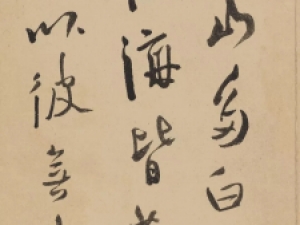 山多白
海皆
以彼無